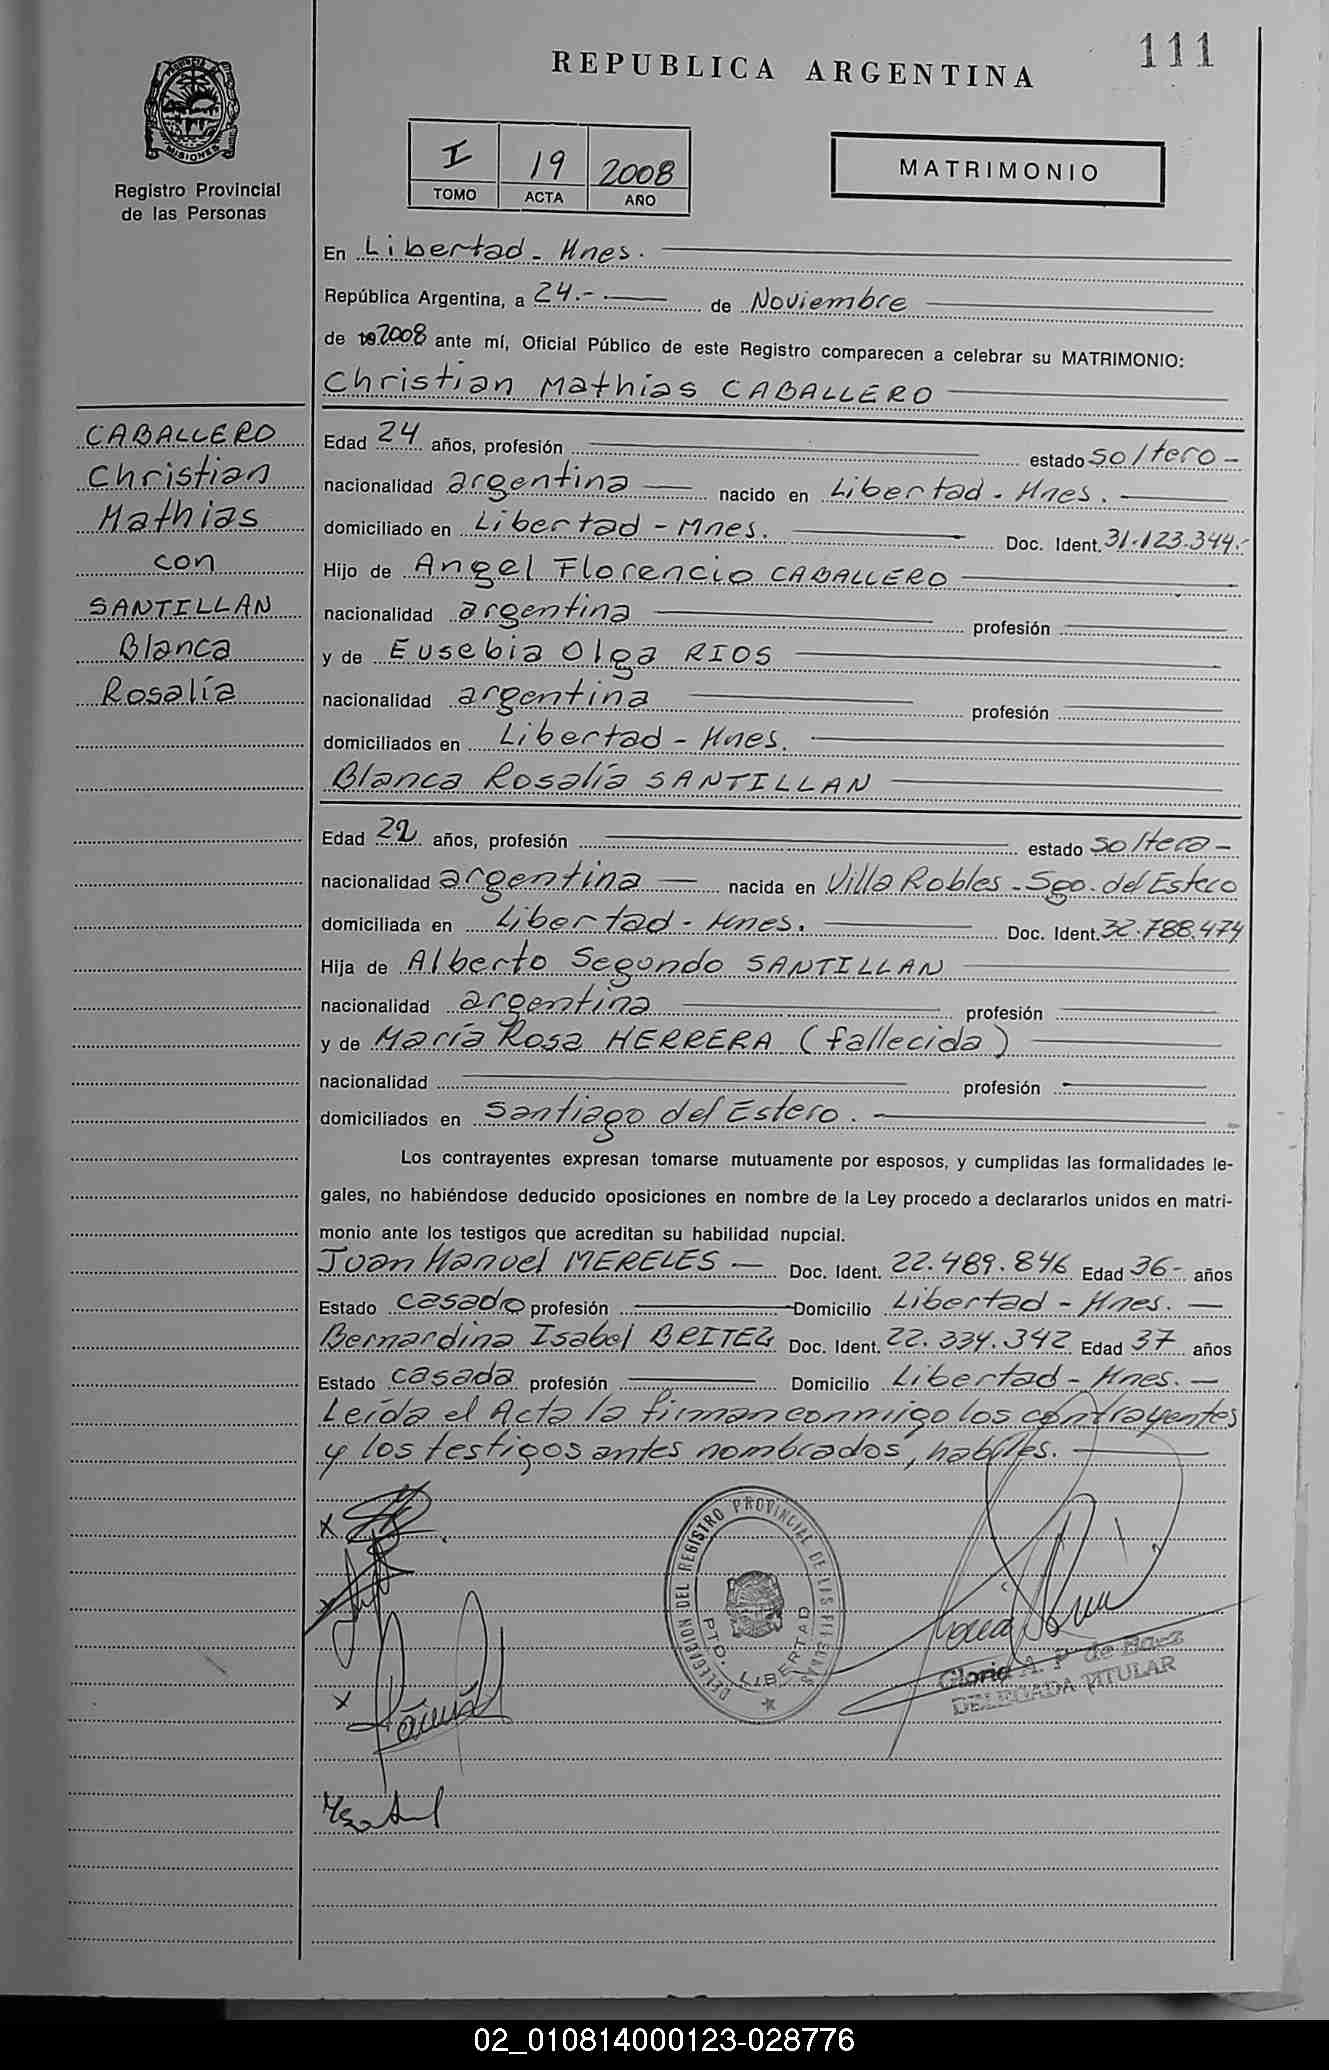 111
REPUBLICA ARGENTINA
MISIONES
Registro Provincial
de las Personas
I 19 2008
TOMO ACTA AÑO
MATRIMONIO
En Libertad - Mnes.
República Argentina, a 24.- de Noviembre
de 19 2008 ante mí, Oficial Público de este Registro comparecen a celebrar su MATRIMONIO:
Christian Mathias CABALLERO
CABALLERO
Christian
Mathias
con
SANTILLAN
Blanca
Rosalía
Edad 24 años, profesión estado soltero -
nacionalidad argentina nacido en Libertad - Mnes.
domiciliado en Libertad - Mnes. Doc. Ident. 31.123.344.-
Hijo de Angel Florencio CABALLERO
nacionalidad argentina profesión
y de Eusebia Olga RIOS
nacionalidad argentina profesión
domiciliados en Libertad - Mnes.
Blanca Rosalía SANTILLAN
Edad 22 años, profesión estado soltera -
nacionalidad argentina nacida en Villa Robles - Sgo. del Estero
domiciliada en Libertad - Mnes. Doc. Ident. 32.788.474
Hija de Alberto Segundo SANTILLAN
nacionalidad argentina profesión
y de María Rosa HERRERA (fallecida)
nacionalidad profesión
domiciliados en Santiago del Estero.
Los contrayentes expresan tomarse mutuamente por esposos, y cumplidas las formalidades le-
gales, no habiéndose deducido oposiciones en nombre de la Ley procedo a declararlos unidos en matri-
monio ante los testigos que acreditan su habilidad nupcial.
Juan Manuel MERELES Doc. Ident. 22.489.846 Edad 36- años
Estado casado profesión Domicilio Libertad - Mnes.
Bernardina Isabel BRITEZ Doc. Ident. 22.334.342 Edad 37 años
Estado casada profesión Domicilio Libertad - Mnes.
Leída el Acta la firman conmigo los contrayentes
y los testigos antes nombrados, habiles.
DELEGACION DEL REGISTRO PROVINCIAL DE LAS PERSONAS
PTO. LIBERTAD
Gloria A. P. de Baez
DELEGADA TITULAR
02_010814000123-028776